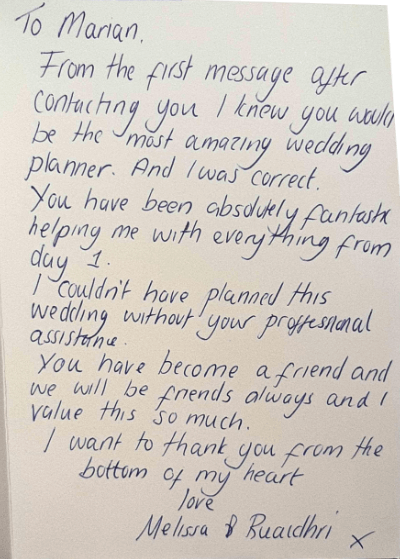 To Marian,
From the first message after
contacting you I knew you would
be the most amazing wedding
planner. And I was correct.
You have been absolutely fantastic
helping me with everything from
day 1.
I couldn't have planned this
wedding without your proffessional
assistance.
You have become a friend and
we will be friends always and I
value this so much.
I want to thank you from the
bottom of my heart
love
Melissa & Ruaidhri x